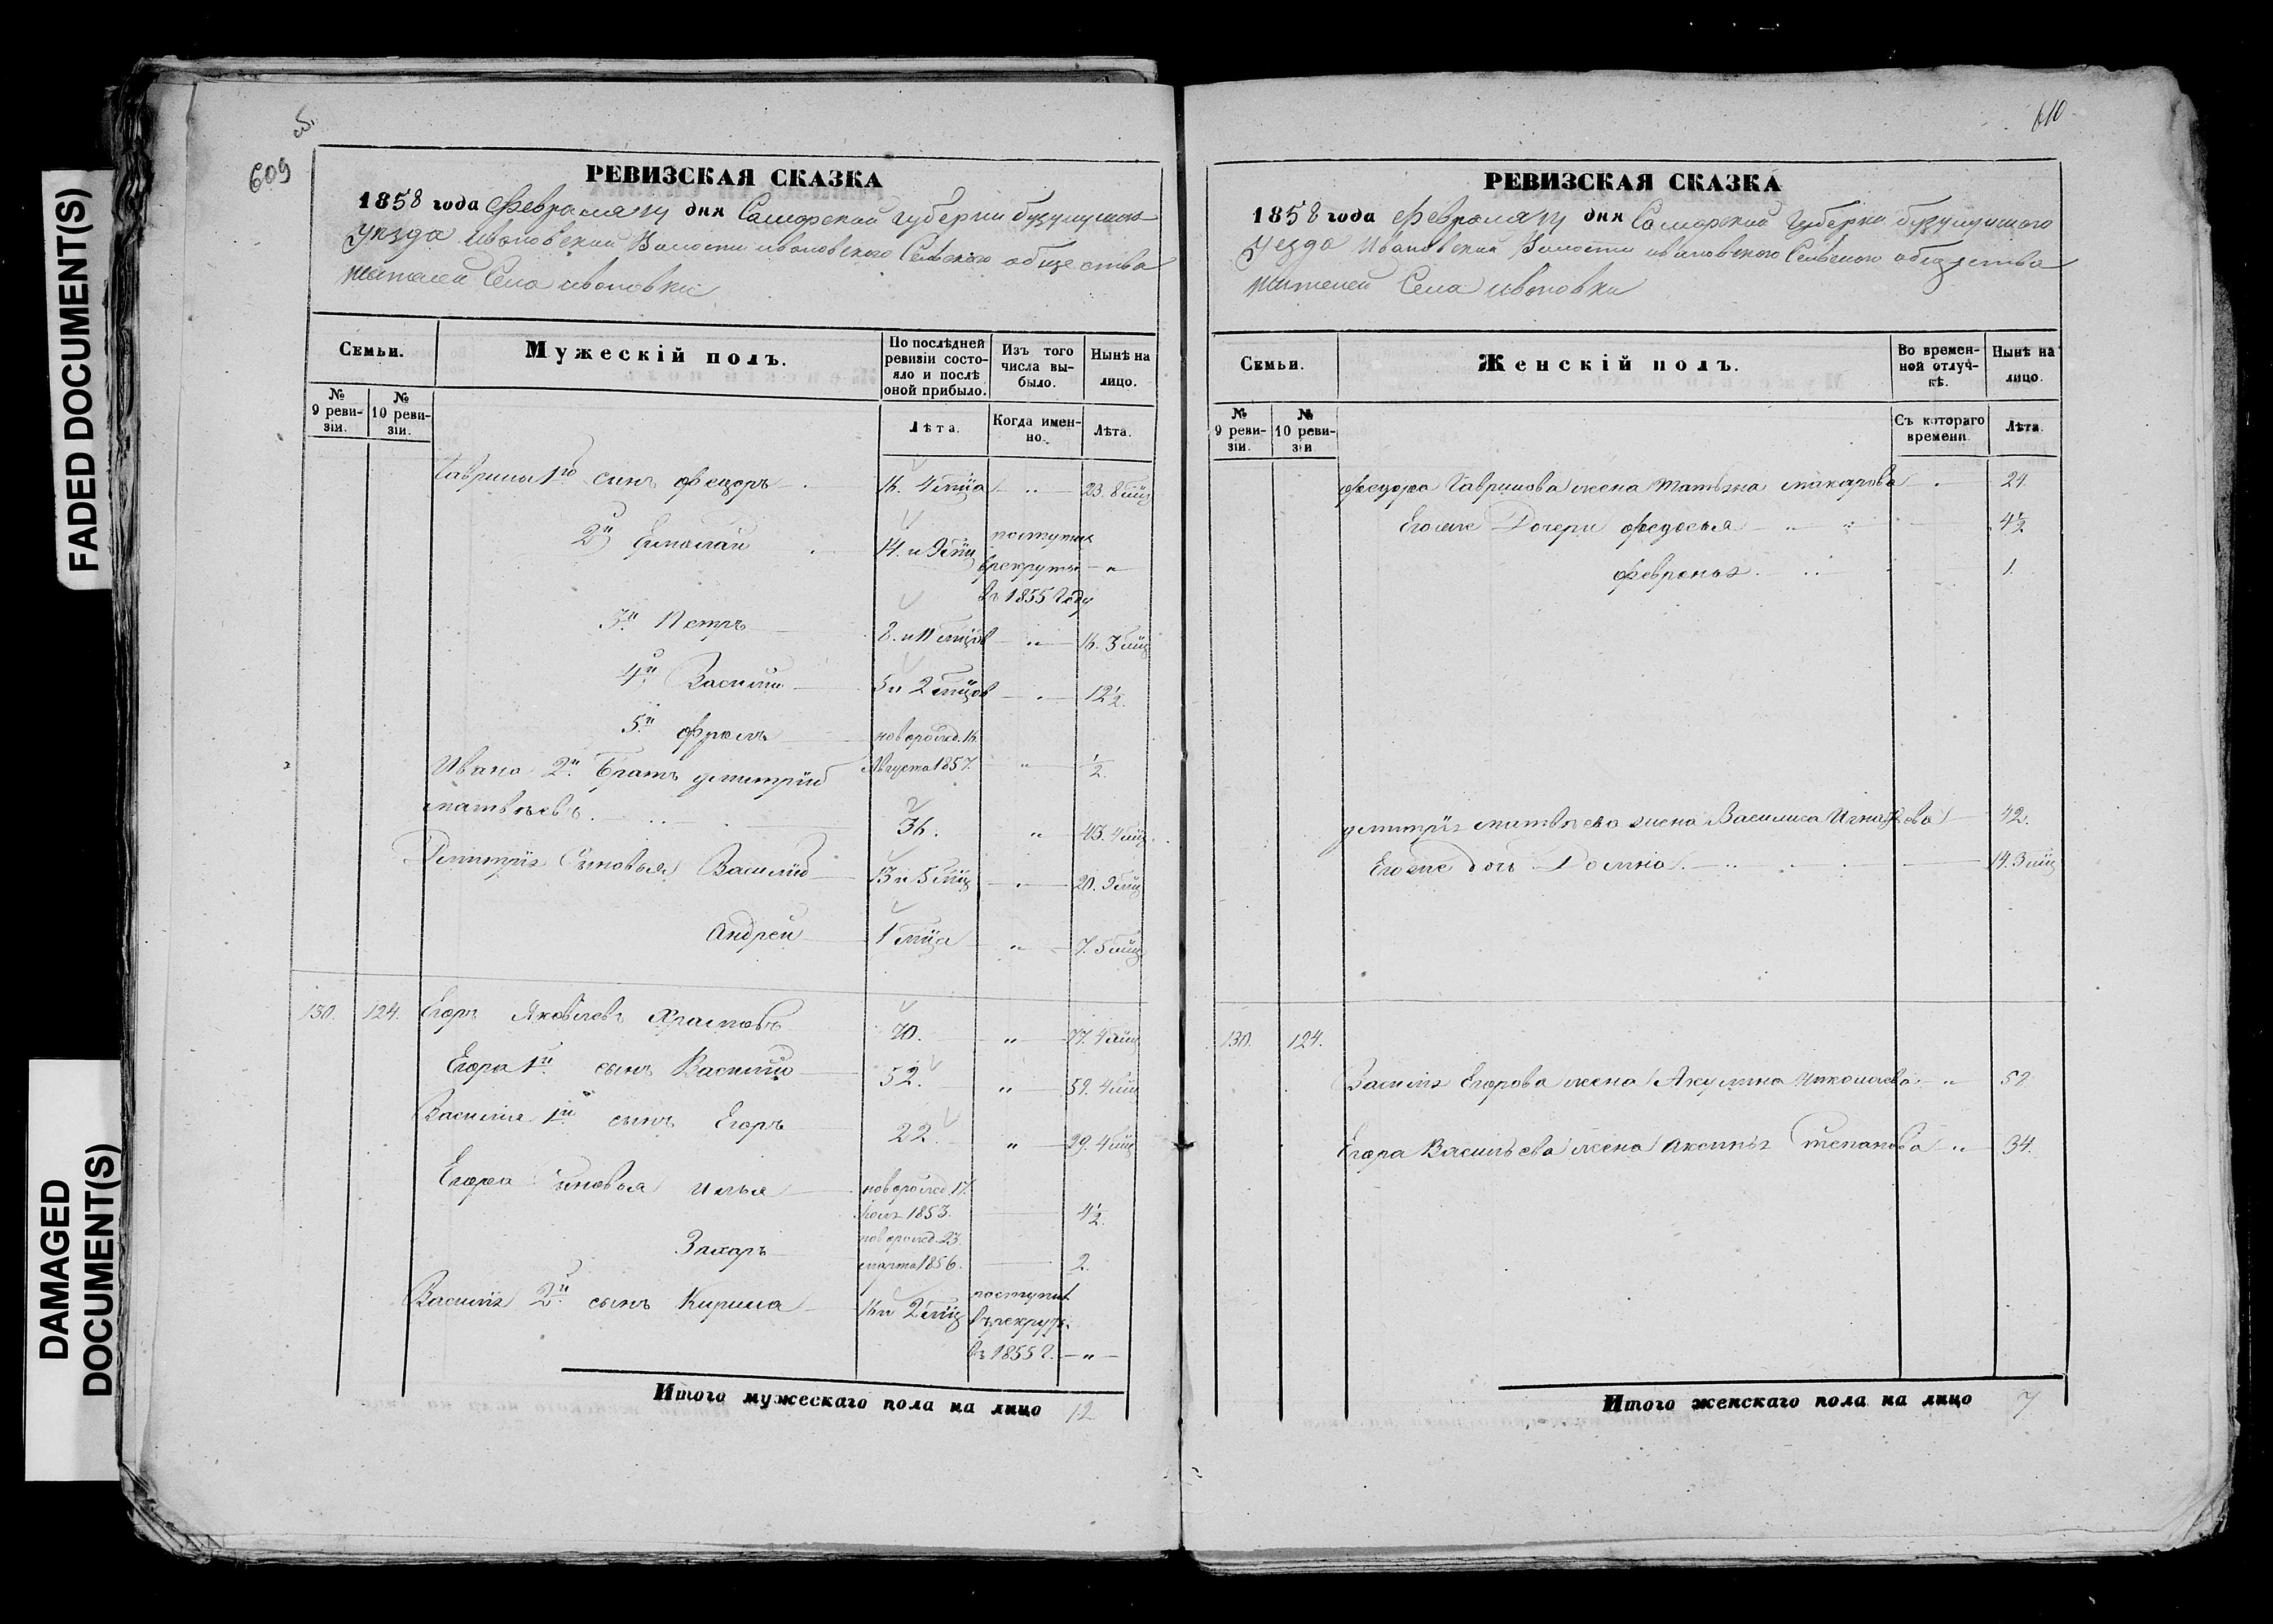 FADED DOCUMENT(S)
DAMAGED
DOCUMENT(S)
609
РЕВИЗСКАЯ СКАЗКА
1858 года февраля дня Самарской губернии бузулуцкого
уезда ивановской Волости ивановского Сельского общества
жителей Села ивановки
Семьи.
Мужескій полъ.
По послѣдней ревизіи состояло и послѣ оной прибыло.
Изъ того числа выбыло.
Нынѣ на лицо.
№ 9 ревизіи.
№ 10 ревизіи.
Лѣта.
Когда именно.
Лѣта.
Гаврилы 1й сынъ федоръ 16. 4 мца 23. 8 мц
2й 14. и 9 мц поступил
врекруты
въ 1855 году
3й Петръ 8. и 11 мцов 16. 3 мц
4й Василий 5 и 2 мцов 12 1/2
5й фролъ новорожд. 16
Августа 1857. 1/2
Ивана 2й Братъ дмитрий
матвѣевъ. 36. 43. 4 мц
Дмитрия Сыновья Василий 13 и 5 мц 20. 9 мц
Андрей 1 мца 7. 5 мц
130. 124. Егоръ Яковлевъ Храмовъ 70. 77. 4 мц
Егора 1й сынъ Василий 52. 59. 4 мц
Василия 1й сынъ Егоръ 22. 29. 4 мц
Егора Сыновья Илья новорожд. 17.
Июля 1853. 4 1/2
Захаръ новорожд. 23.
марта 1856. 2.
Василия 2й сынъ Кирила 16 и 2 мц поступил
въ рекруты
въ 1855 г.
Итого мужескаго пола на лицо 12
610
РЕВИЗСКАЯ СКАЗКА
1858 года февраля дня Самарской Губернии бузулуцкого
уезда Ивановской Волости ивановского Сельского общества
жителей Села ивановки
Семьи.
Женскій полъ.
Во временной отлучкѣ.
Нынѣ на лицо.
№ 9 ревизіи.
№ 10 ревизіи
Съ котораго времени.
Лѣта.
федора Гаврилова жена Татьяна макарова 24
Егоже Дочери федосья 4 1/2
февронья 1.
дмитрия матвѣева жена Василиса Игнатьева 42.
Егоже дочь Домна 14. 3 мц
130. 124.
Василия Егорова жена Акулина Николаева 58
Егора Васильева жена Аксинья Степанова 34.
Итого женскаго пола на лицо 7